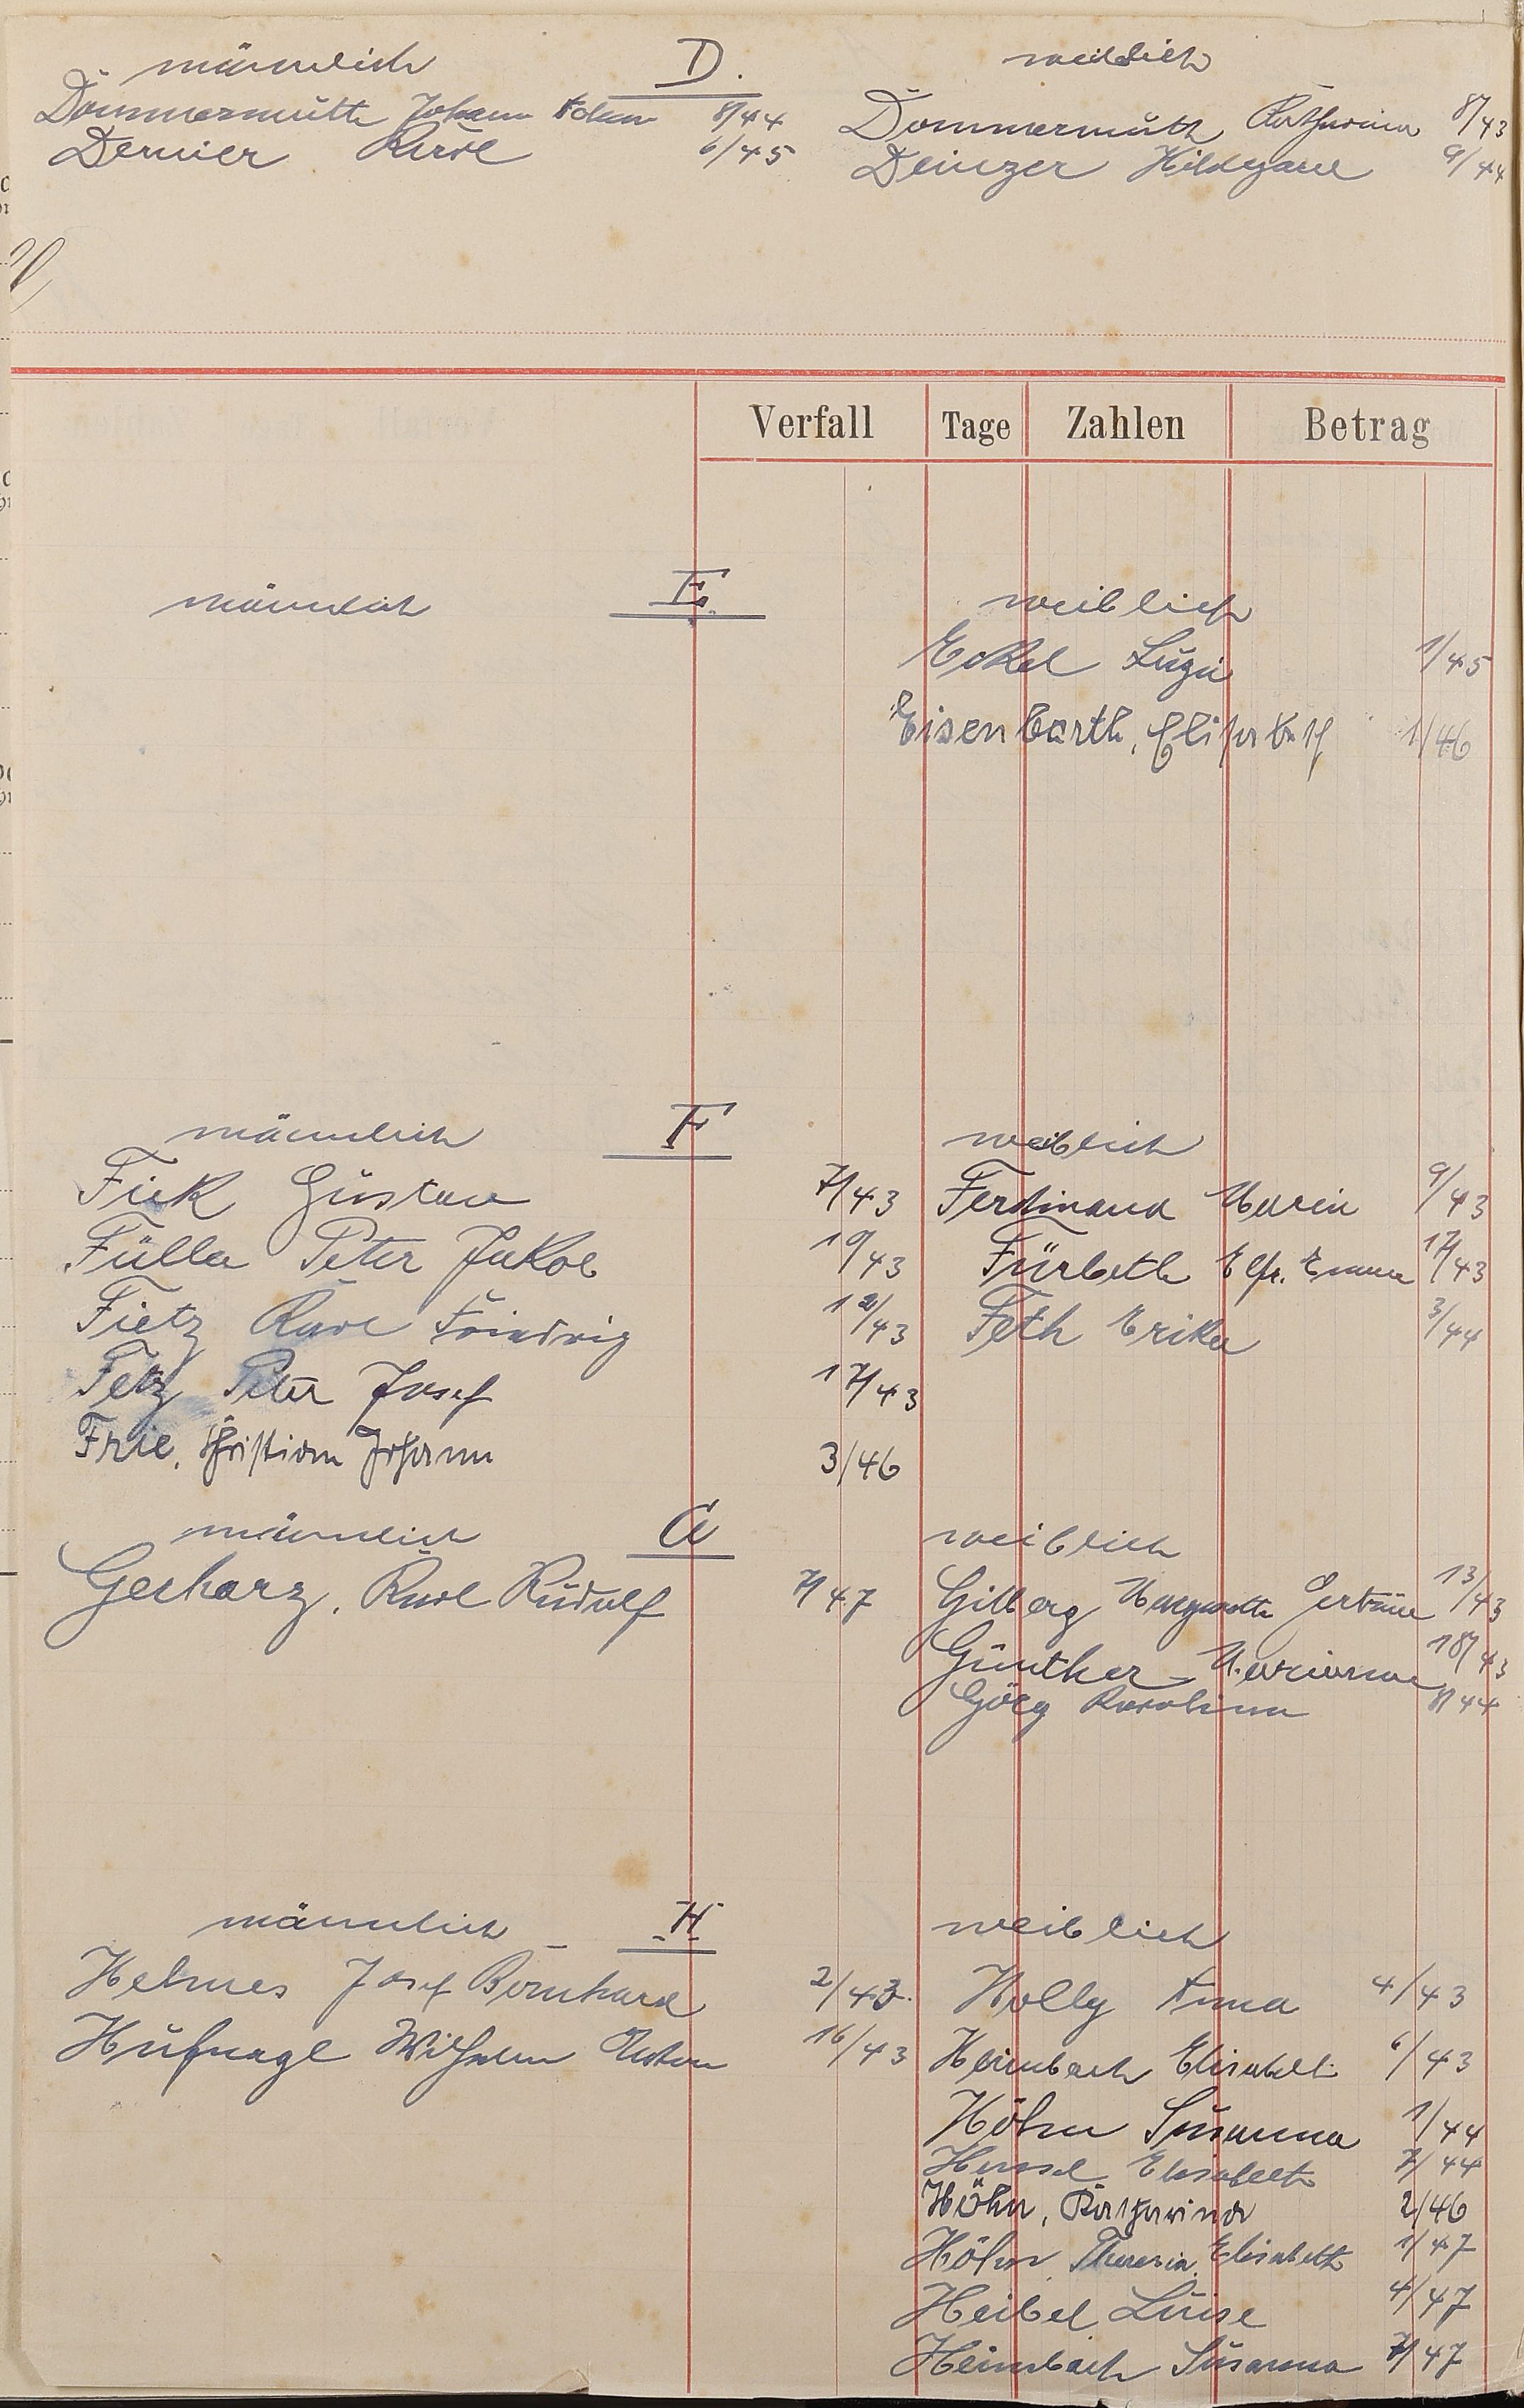 männlich D. weiblich
Dommermuth Johann Adam 8/44 Dommermuth Katharina 8/43
Dernier Karl 6/45 Deinzer Hildegard 9/44
Verfall Tage Zahlen Betrag
männlich E. weiblich
Eckel Luzia 1/45
Eisenbarth, Elisabeth 1/46
männlich F weiblich
Fick Gustav 7/43 Ferdinand Maria 9/43
Füller Peter Jakob 10/43 Fürbeth Elfr. Emma 17/43
Fietz Karl Friedrich 12/43 Feth Erika 3/44
Fetz Peter Josef 17/43
Frie, Christian Johann 3/46
männlich G weiblich
Gerharz, Karl Rudolf 7/47 Gilberg Margaretha Gertrud 13/43
Günther Marianne 18/43
Görg Karolina 8/44
männlich H weiblich
Helmes Josef Bernhard 2/43. Holly Anna 4/43
Hufnagel Wilhelm Anton 16/43 Heimbach Elisabeth 6/43
Höhn Susanna 1/44
Hensel Elisabeth 7/44
Höhn, Katharina 2/46
Höhn, Theresia Elisabeth 1/47
Heibel Luise 4/47
Heimbach Susanna 7/47